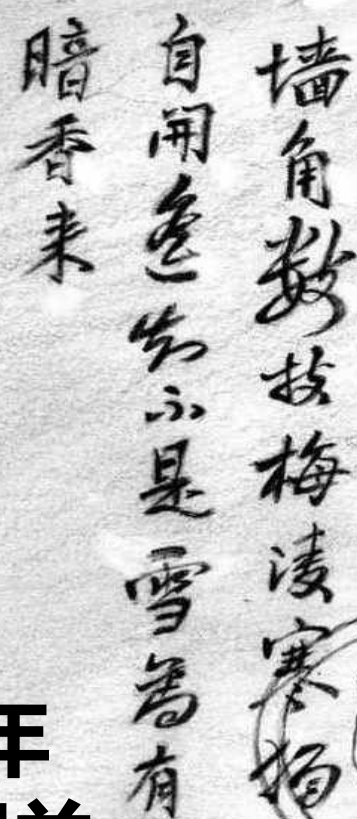 墙角数技梅凌寒独
自开遥知不是雪为有
暗香来
年